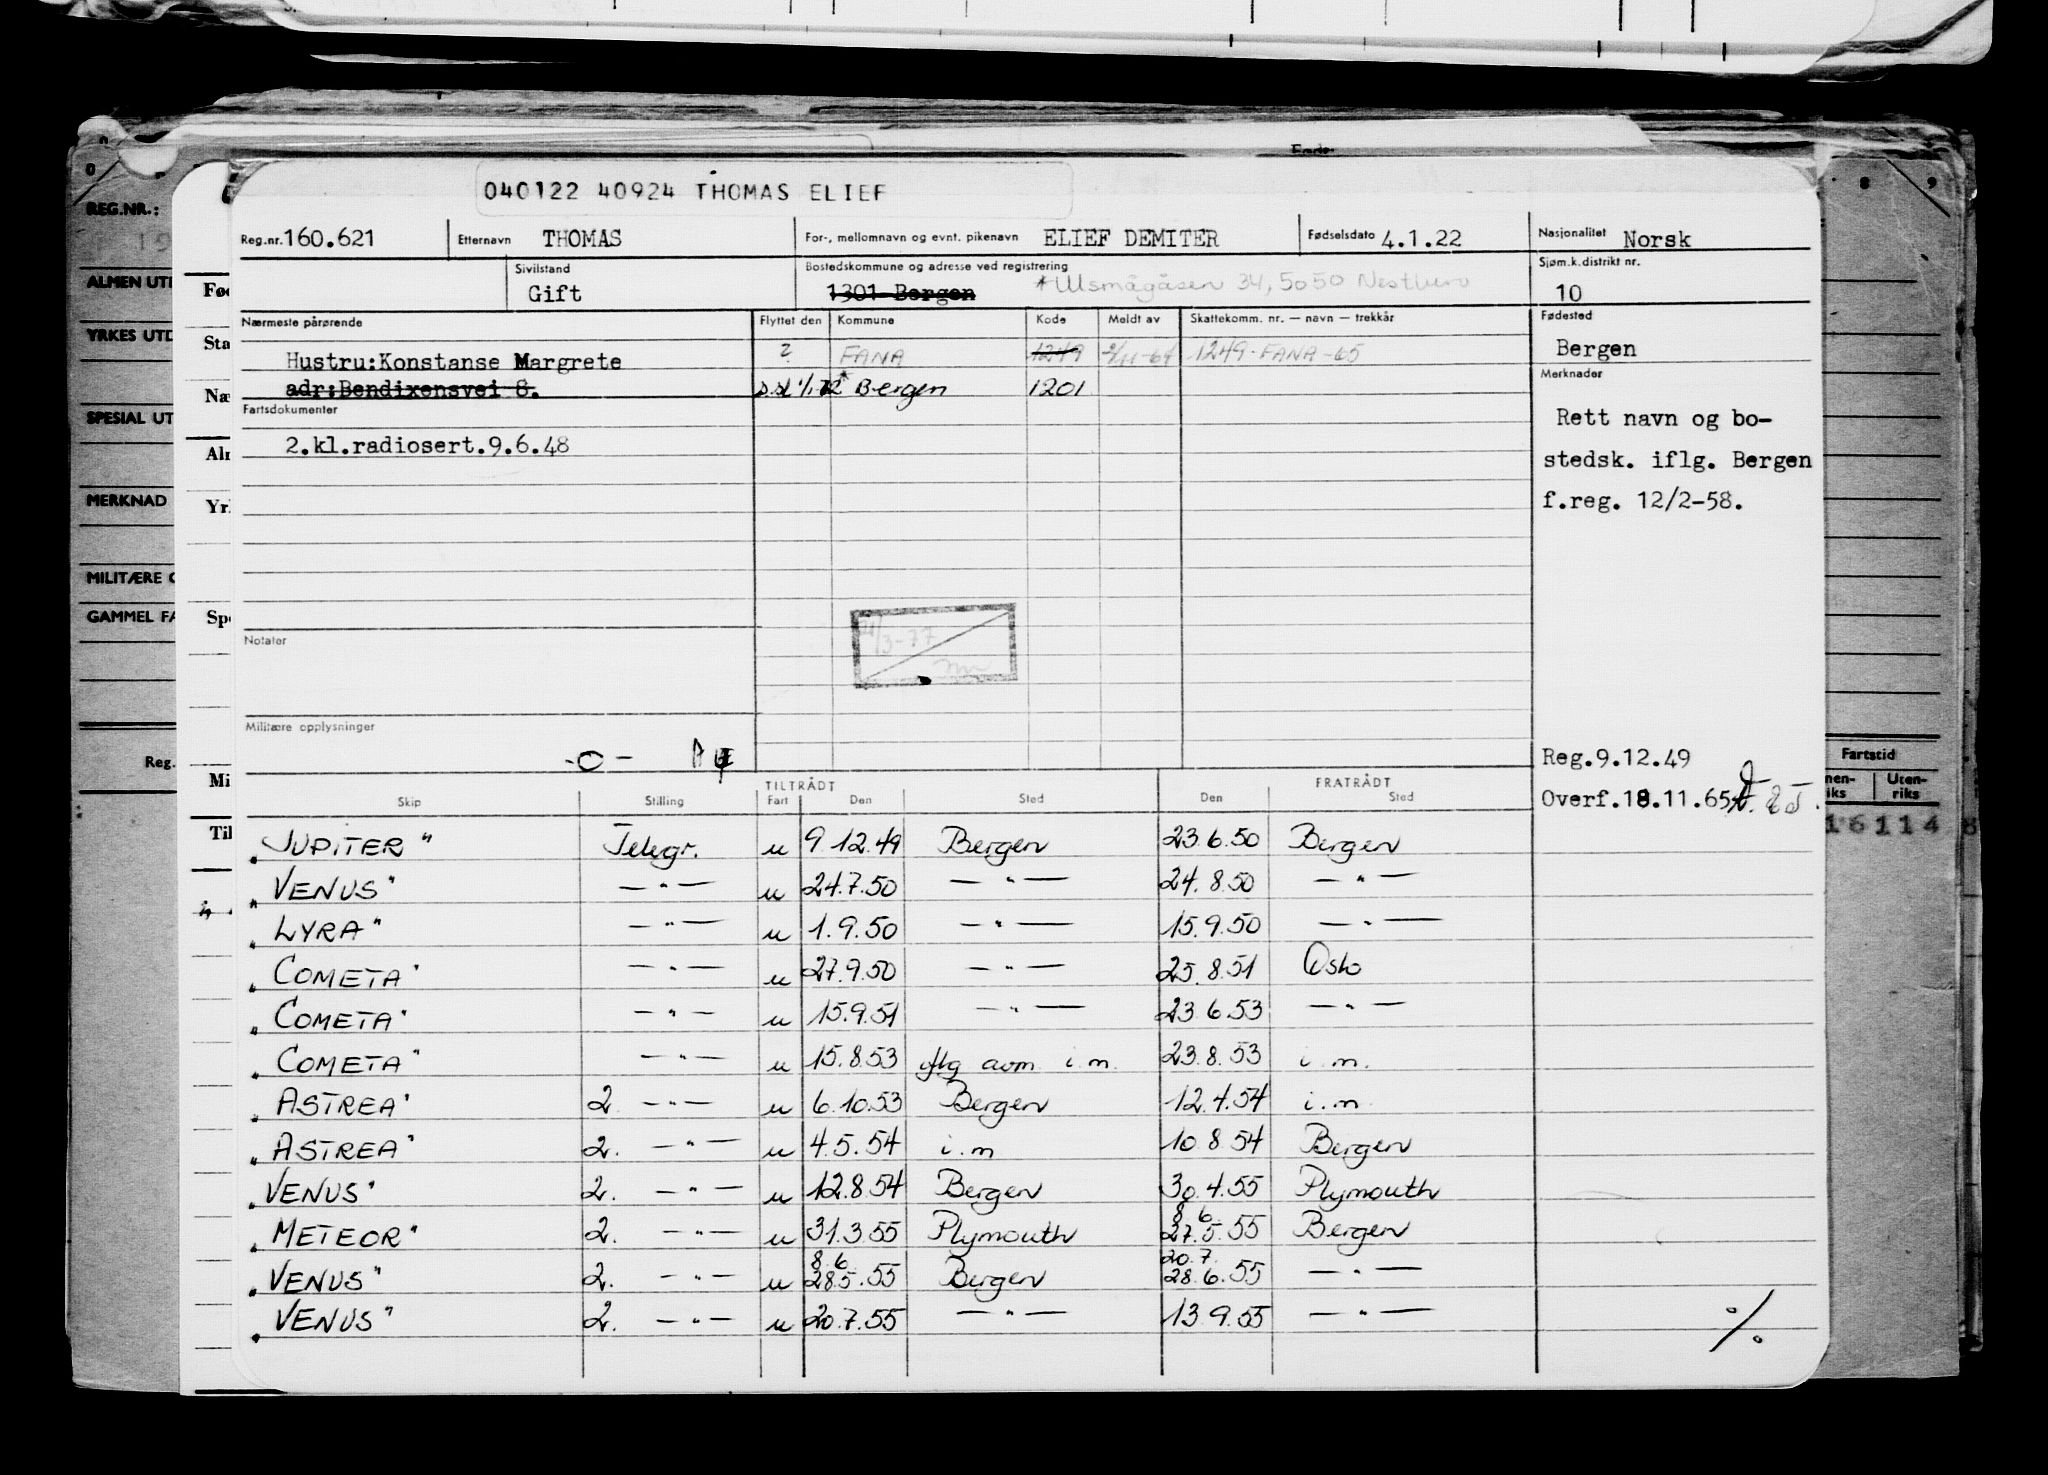 040122 40924 THOMAS ELIEF
Reg.nr. 160.621 Etternavn THOMAS For-, mellomnavn og evnt. pikenavn ELIEF DEMITER Fødselsdato 4.1.22 Nasjonalitet Norsk
Sivilstand Gift Bostedskommune og adresse ved registrering 1301 Bergen 34, 5050 Nesttun Sjøm.k.distrikt nr. 10
Nærmeste pårørende Flyttet den Kommune Kode Meldt av Skattekomm. nr. — navn — trekkår Fødested
Hustru:Konstanse Margrete ? FANA 1249 1249-FANA-65 Bergen
adr:Bendixensvei 8. Bergen 1201 Merknader
Fartsdokumenter
2.kl.radiosert.9.6.48
Rett navn og bo-
stedsk. iflg. Bergen
f.reg. 12/2-58.
Notater
Militære opplysninger
-0-
Reg.9.12.49
Overf.18.11.65
TILTRÅDT FRATRÅDT
Skip Stilling Fart Den Sted Den Sted
"JUPITER" Telegr. u 9.12.49 Bergen 23.6.50 Bergen
"VENUS" —"— u 24.7.50 —"— 24.8.50 —"—
"LYRA" —"— u 1.9.50 —"— 15.9.50 —"—
"COMETA" —"— u 27.9.50 —"— 25.8.51 Oslo
"COMETA" —"— u 15.9.51 —"— 23.6.53 —"—
"COMETA" —"— u 15.8.53 iflg avm i.m. 23.8.53 i.m.
"ASTREA" 2. —"— u 6.10.53 Bergen 12.4.54 i.m
"ASTREA" 2. —"— u 4.5.54 i.m 10.8.54 Bergen
"VENUS" 2. —"— u 12.8.54 Bergen 30.4.55 Plymouth
"METEOR" 2. —"— u 31.3.55 Plymouth 8 6 27.5.55 Bergen
"VENUS" 2. —"— u 8.6 28.5.55 Bergen 20.7. 28.6.55 —"—
"VENUS" 2. —"— u 20.7.55 —"— 13.9.55 —"—
%
REG.NR.:
MERKNAD
Reg.
Fartstid
Uten-
riks
16114
8 9